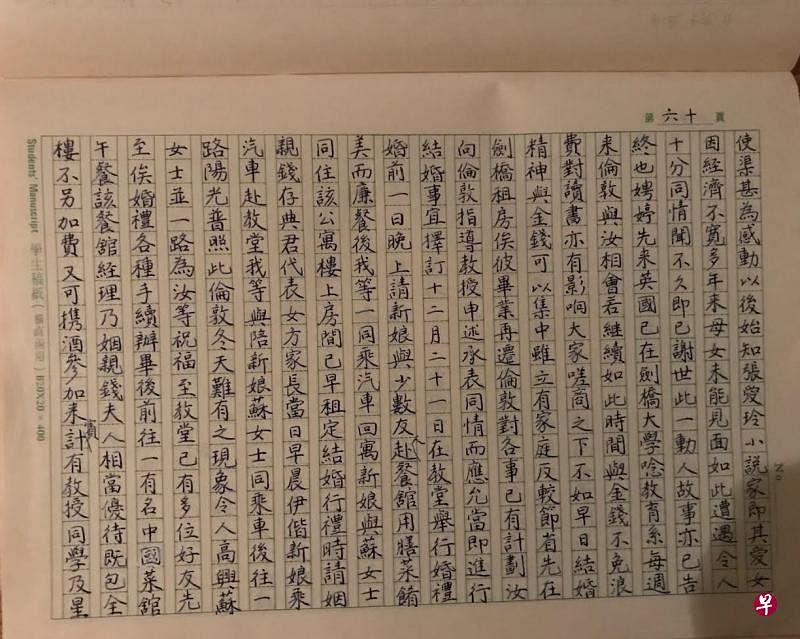 第 六十 頁
使渠甚為感動以後始知張愛玲小說家即其愛女
因經濟不寬多年來母女未能見面如此遭遇令人
十分同情聞不久即已謝世此一動人故事亦已告
終也娉婷先來英國已在劍橋大學唸教育系每週
來倫敦與汝相會若繼續如此時間與金錢不免浪
費對讀書亦有影响大家嗟商之下不如早日結婚
精神與金錢可以集中雖立有家庭反較節省先在
劍橋租房俟彼畢業再遷倫敦對各事已有計劃汝
向倫敦指導教授申述承表同情而應允當即進行
結婚事宜擇訂十二月二十一日在教堂舉行婚禮
婚前一日晚上請新娘與少數友人赴餐舘用膳菜餚
美而廉餐後我等一同乘汽車回寓新娘與蘇女士
同住該公寓樓上房間已早租定結婚行禮時請姻
親錢存典君代表女方家長當日早晨伊偕新娘乘
汽車赴教堂我等與陪新娘蘇女士同乘車後往一
路陽光普照此倫敦冬天難有之現象令人高興蘇
女士並一路為汝等祝福至教堂已有多位好友先
至俟婚禮各種手續辦畢後前往一有名中國菜舘
午餐該餐舘經理乃姻親錢夫人相當優待既包全
樓不另加費又可携酒參加來賓計有教授同學及星
Students' Manuscript 學生稿紙 20×20=400
No
早